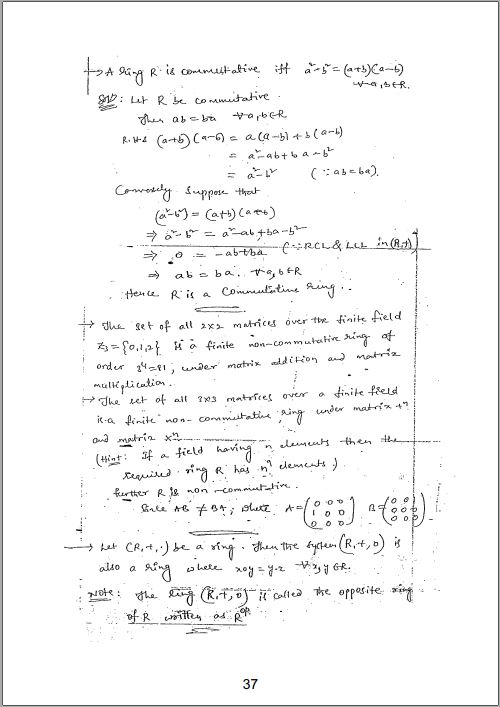 → A ring R is commutative iff a²-b² = (a+b)(a-b)
∀ a,b∈R.
Sol: Let R be commutative.
Then ab = ba ∀ a,b∈R
R.H.S (a+b)(a-b) = a(a-b)+b(a-b)
= a²-ab+ba-b²
= a²-b² (∵ ab=ba).
Conversely suppose that
(a²-b²) = (a+b)(a-b)
⇒ a²-b² = a²-ab+ba-b²
⇒ 0 = -ab+ba (∵ RCL & LCL in (R,+))
⇒ ab = ba. ∀ a,b∈R
Hence R is a Commutative ring.
→ The set of all 2x2 matrices over the finite field
Z₃ = {0,1,2} is a finite non-commutative ring of
order 3⁴=81, under matrix addition and matrix
multiplication.
→ The set of all 3x3 matrices over a finite field
is a finite non-commutative ring under matrix +ⁿ
and matrix xⁿ.
(Hint: If a field having n elements then the
required ring R has elements.)
further R is non-commutative.
Since AB ≠ BA; where A = (0 0 0 B = (0 0
1 0 0 0 0 0
0 0 0) 0 0 0)
→ Let (R,+,·) be a ring. Then the system (R,+,o) is
also a ring where xoy = y.x ∀ x,y∈R.
Note: The ring (R,+,o) is called the opposite ring
of R written as R^op.
37